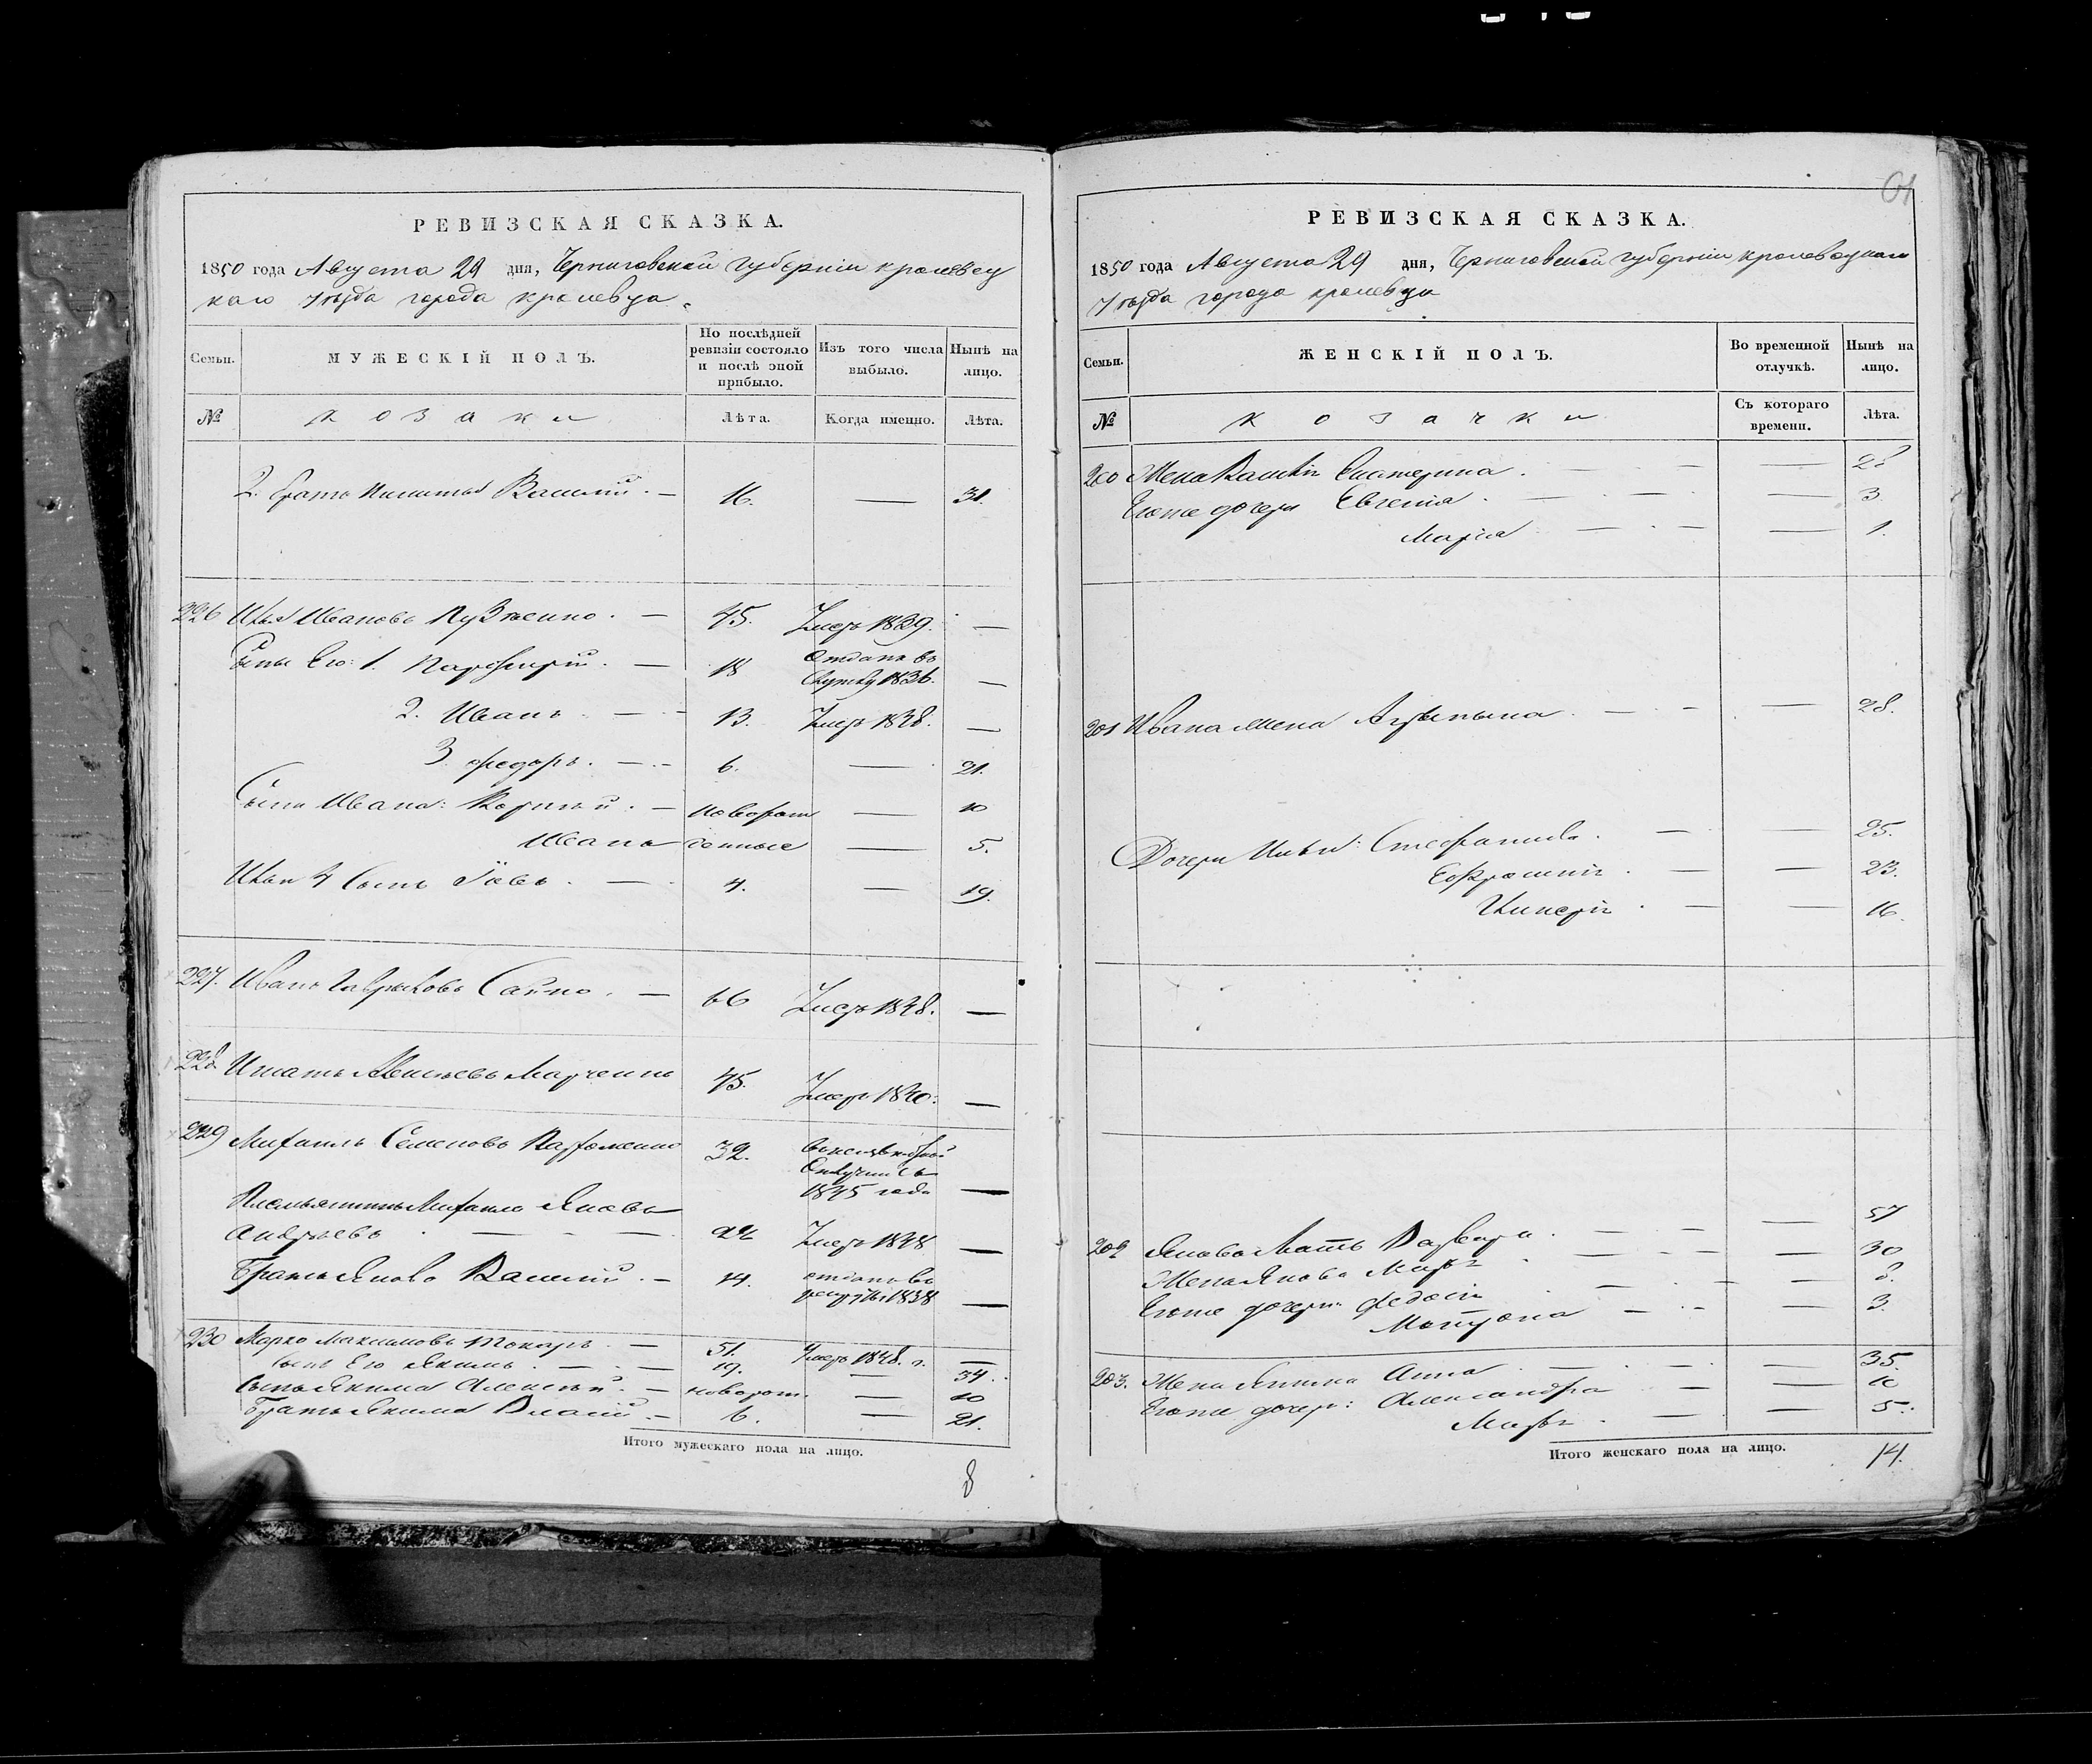 РЕВИЗСКАЯ СКАЗКА.
1850 года Августа 29 дня, Черниговской губерніи кролевец
каго уѣзда города кролевца.
Семьи.
МУЖЕСКІЙ ПОЛЪ.
По послѣдней
ревизіи состояло
и послѣ оной
прибыло.
Изъ того числа
выбыло.
Нынѣ на
лицо.
№
козаки
Лѣта.
Когда именно.
Лѣта.
2. братъ Василій. — 16. — 31.
226 Илья Ивановъ — 45. Умеръ 1839. —
Сыны Его: 1. Порфирій. — 18 Отданъ въ
службу 1836. —
2. Иванъ — 13. Умеръ 1848. —
3 федоръ. — 6. — 21.
Сыны Ивана: Корнѣй. — новорож — 10
Иванъ денные — 5.
Ильи 4 сынъ Іовъ. — 4. — 19.
227. Иванъ Гавриловъ — 66 Умеръ 1848. —
228. Игнатъ Марченко 45. Умеръ 1840. —
229 Михаилъ Семеновъ Пархоменко 32.
1845 года —
Племянникъ Михаила Яковъ
Андреевъ — Умеръ 1848 —
Братъ Якова Василій. — 14. отданъ въ
рекруты 1838 —
230 Марко Максимовъ Токарь. — 51. Умеръ 1848. г. —
сынъ Его Якимъ. — 19. — 34.
Сынъ Якима Алексѣй. — новорож. — 10
Братъ Якима Власій — 6. — 21.
Итого мужескаго пола на лицо.
8
61
РЕВИЗСКАЯ СКАЗКА.
1850 года Августа 29 дня, Черниговской губерніи кролевецкаго
уѣзда города кролевца
Семьи.
ЖЕНСКІЙ ПОЛЪ.
Во временной
отлучкѣ.
Нынѣ на
лицо.
№
козачки
Съ котораго
времени.
Лѣта.
200 Жена Василія Екатерина. — — 28
Егоже дочери Евгенія. — — 3.
Марія — — 1.
201 Ивана жена Агрипина. — — 28.
Дочери Ильи: Стефанида. — — 25.
Ефросинія. — — 23.
Гликерія. — — 16.
57
202 Якова мать Варвара. — — 30
Жена Якова Марфа — — 8.
Егоже дочери: федосія — — 3.
Матрона — —
203. Жена Якима Анна — — 35.
Егоже дочери: Александра — — 10
Марфа. — — 5.
Итого женскаго пола на лицо.
14.